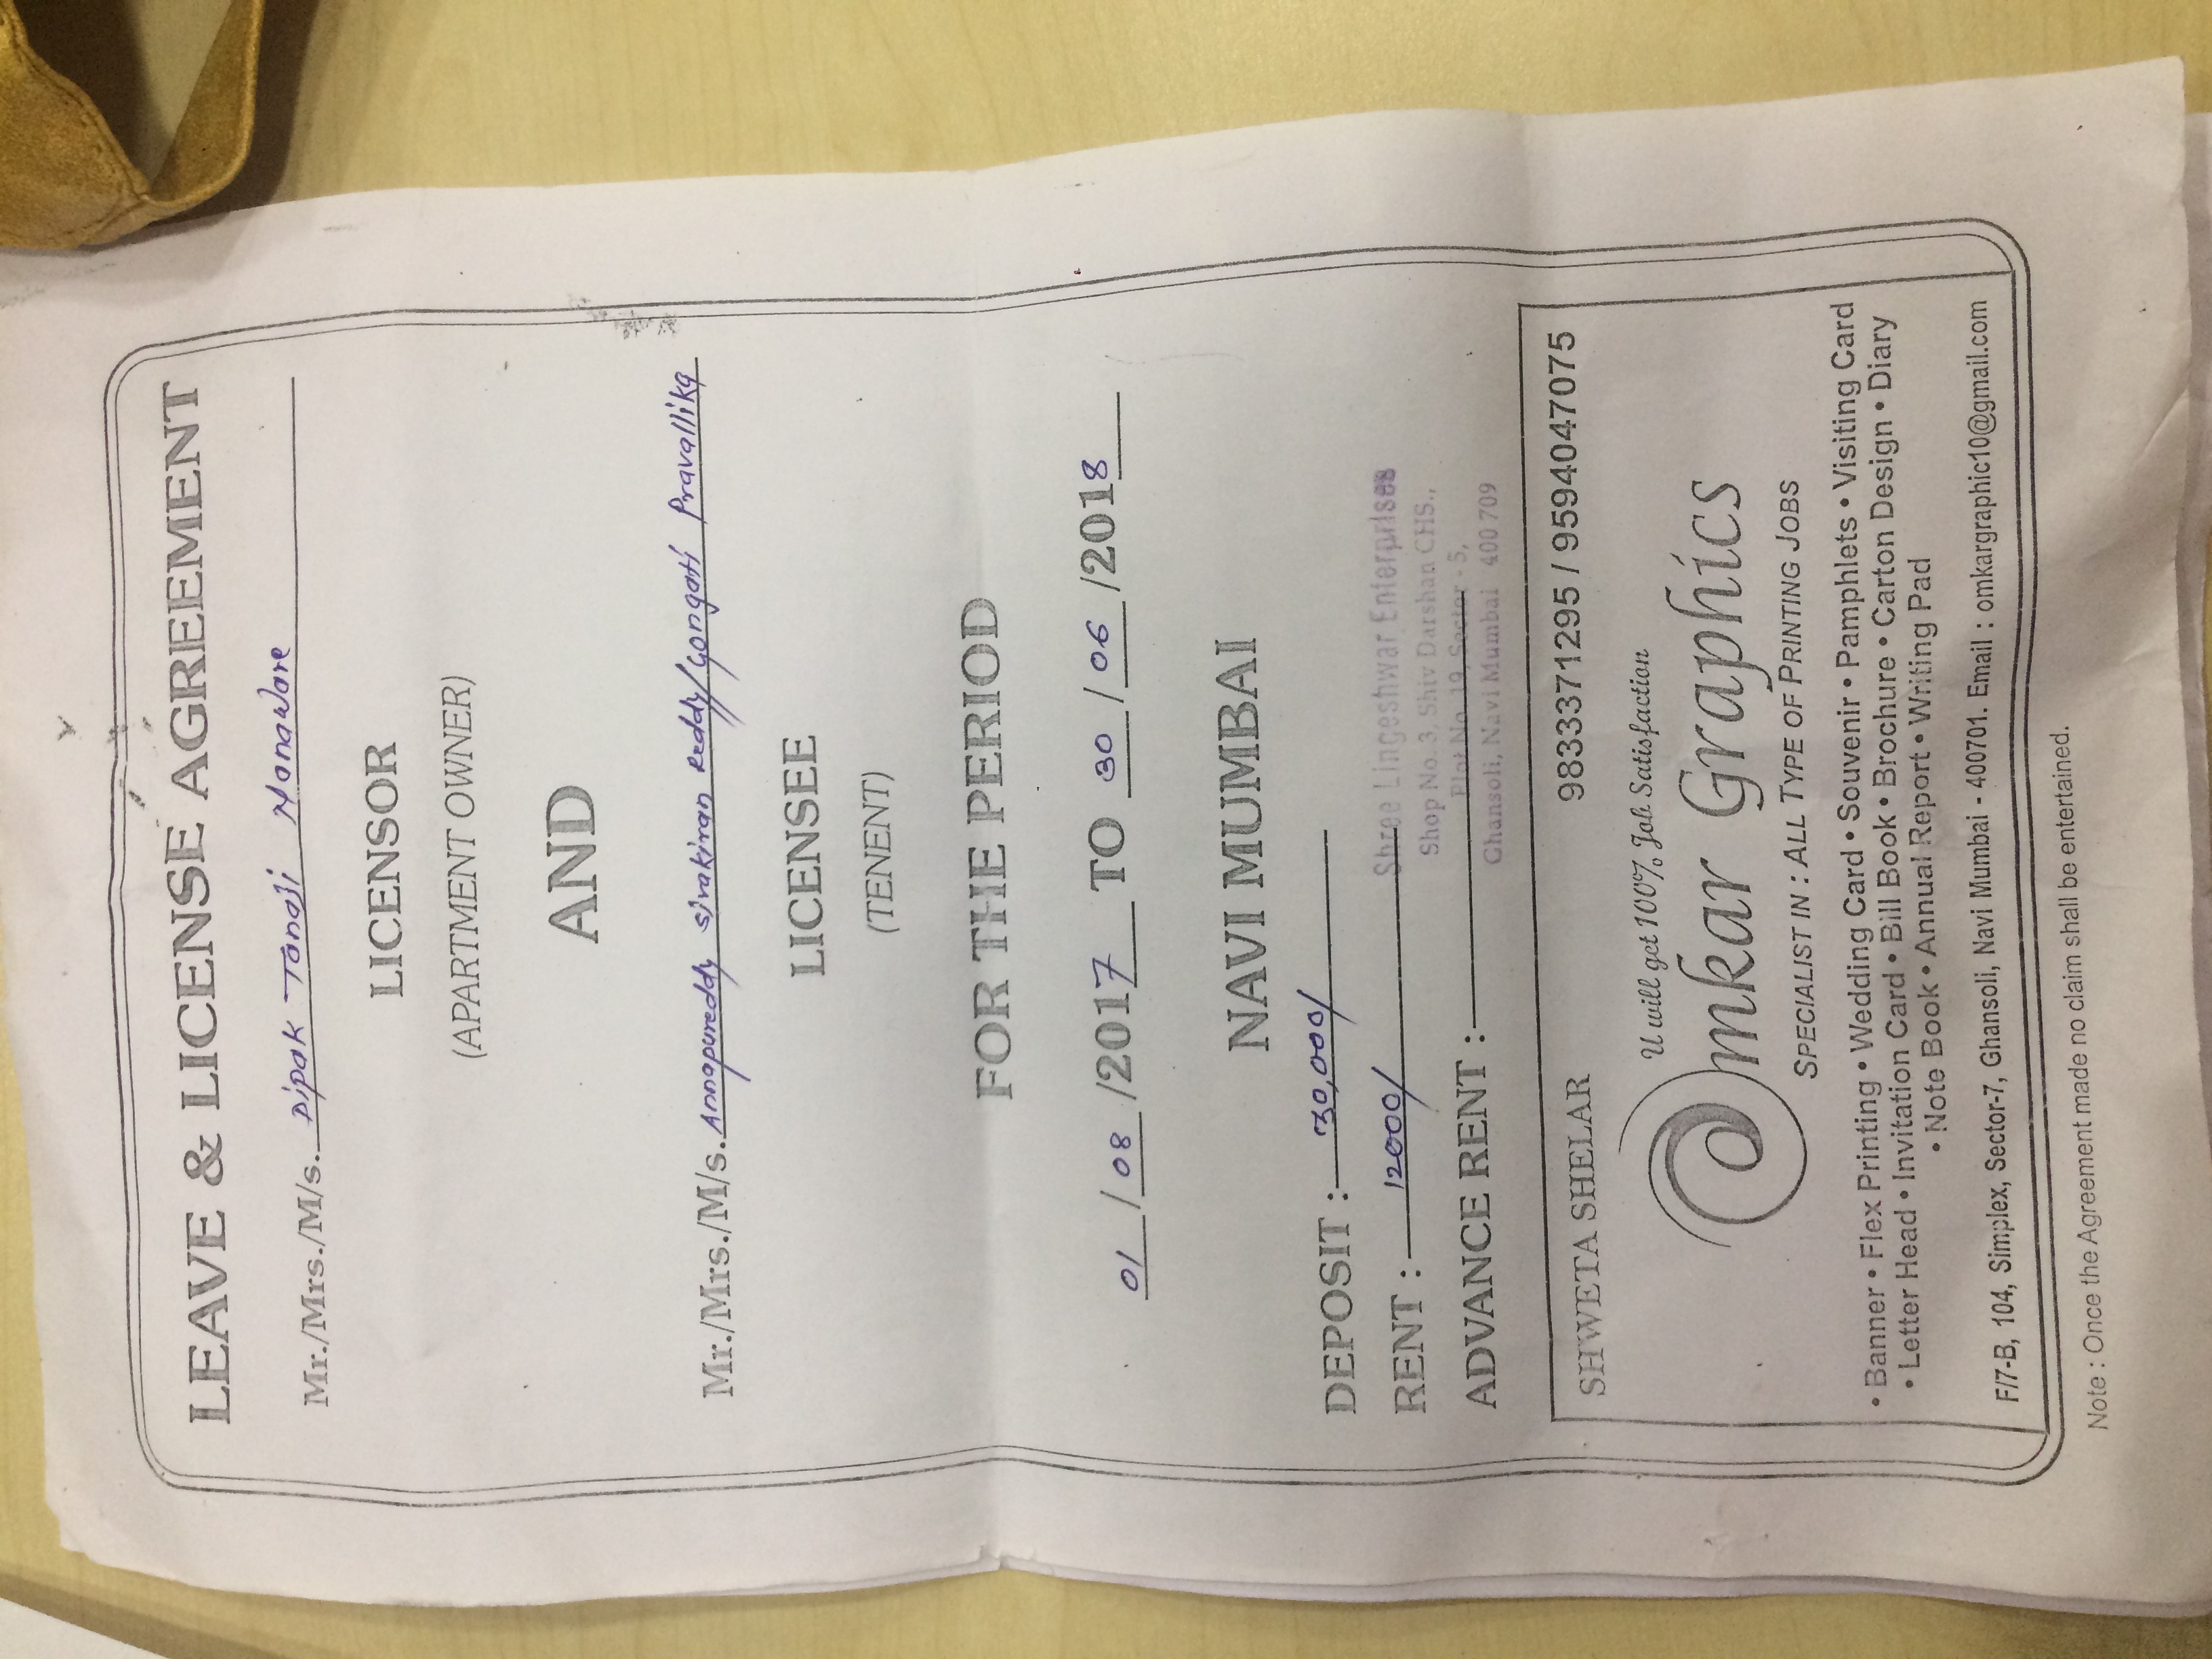 LEAVE & LICENSE AGREEMENT
Mr./Mrs./M/s. Dipak Tanaji Manaware
LICENSOR
(APARTMENT OWNER)
AND
Mr./Mrs./M/s. Annapureddy sivakiran Reddy/Gongati Pravallika
LICENSEE
(TENENT)
FOR THE PERIOD
01/08/2017 TO 30/06/2018
NAVI MUMBAI
DEPOSIT : 30,000/
RENT : 12000/
ADVANCE RENT :
Shree Lingeshwar Enterprises
Shop No. 3, Shiv Darshan CHS.,
Plot No. 19, Sector - 5,
Ghansoli, Navi Mumbai 400 709
SHWETA SHELAR 9833371295 / 9594047075
U will get 100% Job Satisfaction
Omkar Graphics
SPECIALIST IN : ALL TYPE OF PRINTING JOBS
• Banner • Flex Printing • Wedding Card • Souvenir • Pamphlets • Visiting Card
• Letter Head • Invitation Card • Bill Book • Brochure • Carton Design • Diary
• Note Book • Annual Report • Writing Pad
F/7-B, 104, Simplex, Sector-7, Ghansoli, Navi Mumbai - 400701. Email : omkargraphic10@gmail.com
Note : Once the Agreement made no claim shall be entertained.